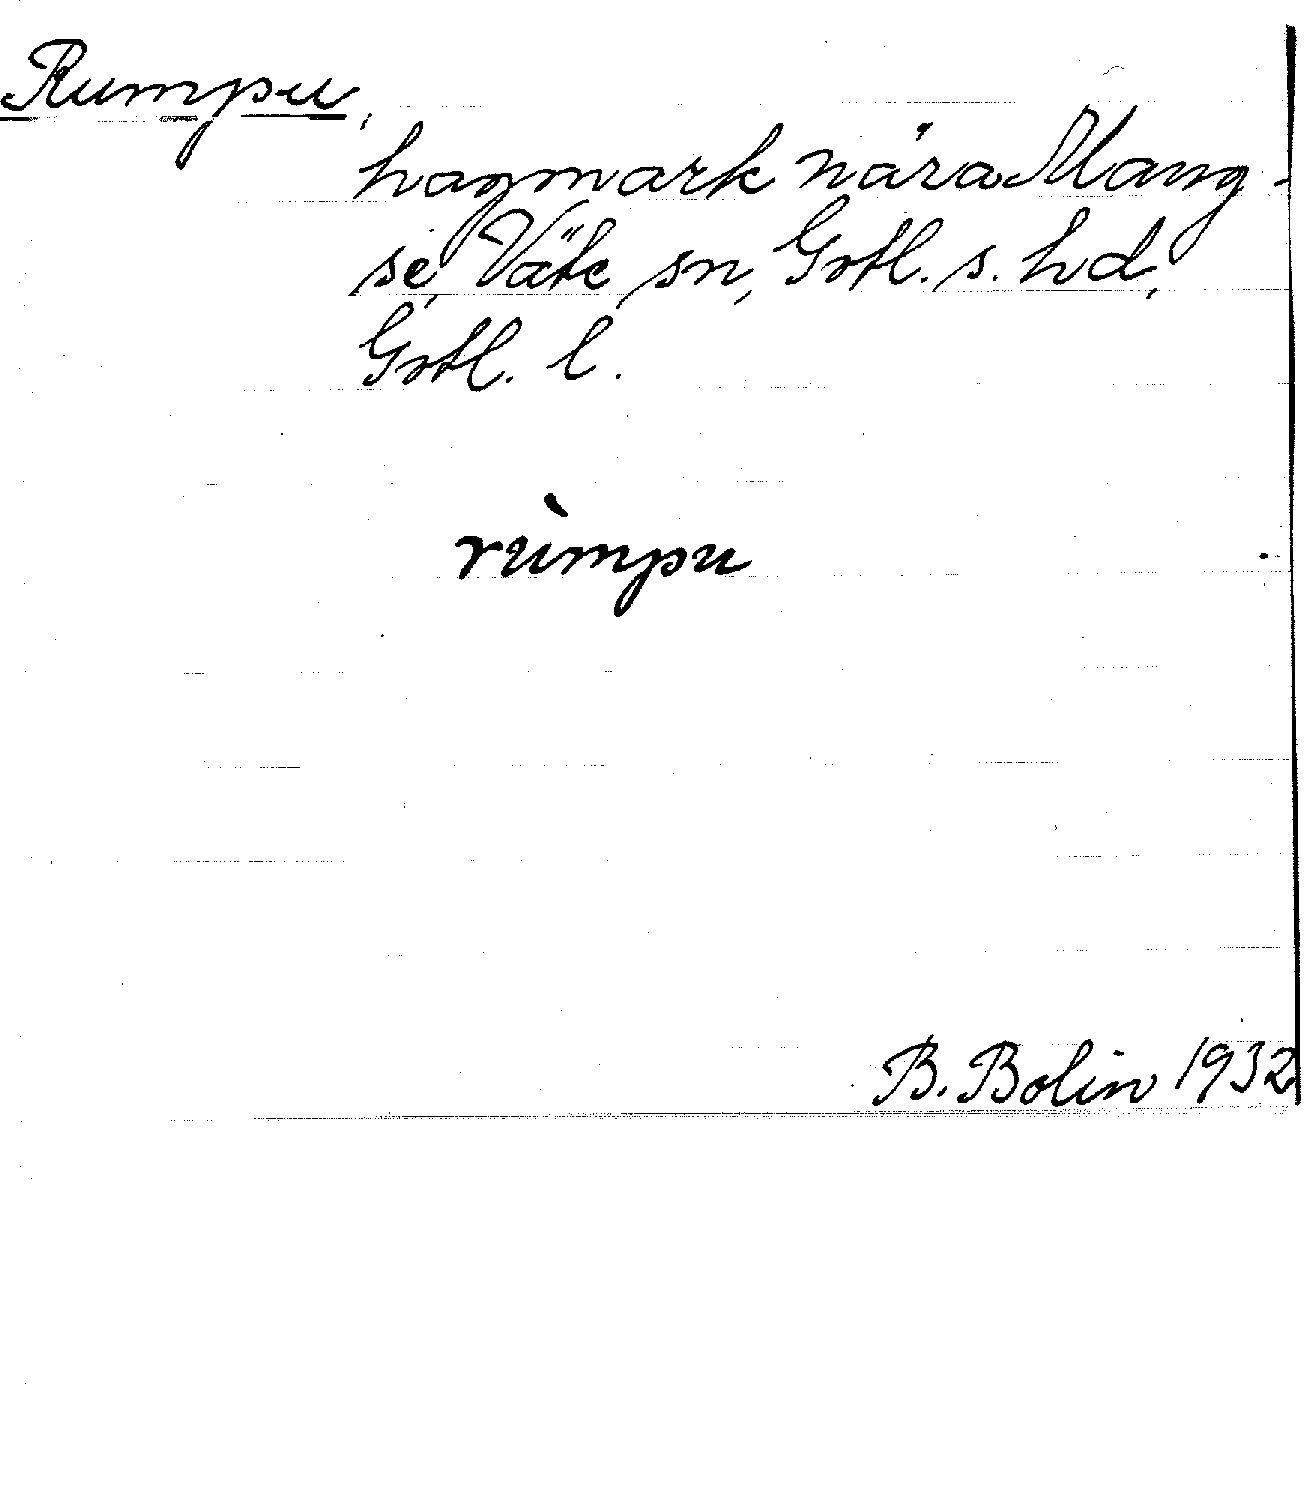 Rumpu,
hagmark nära Mang-
se, Väte sn, Gotl. s. hd,
Gotl. l.
rùmpu
B. Bolin 1932